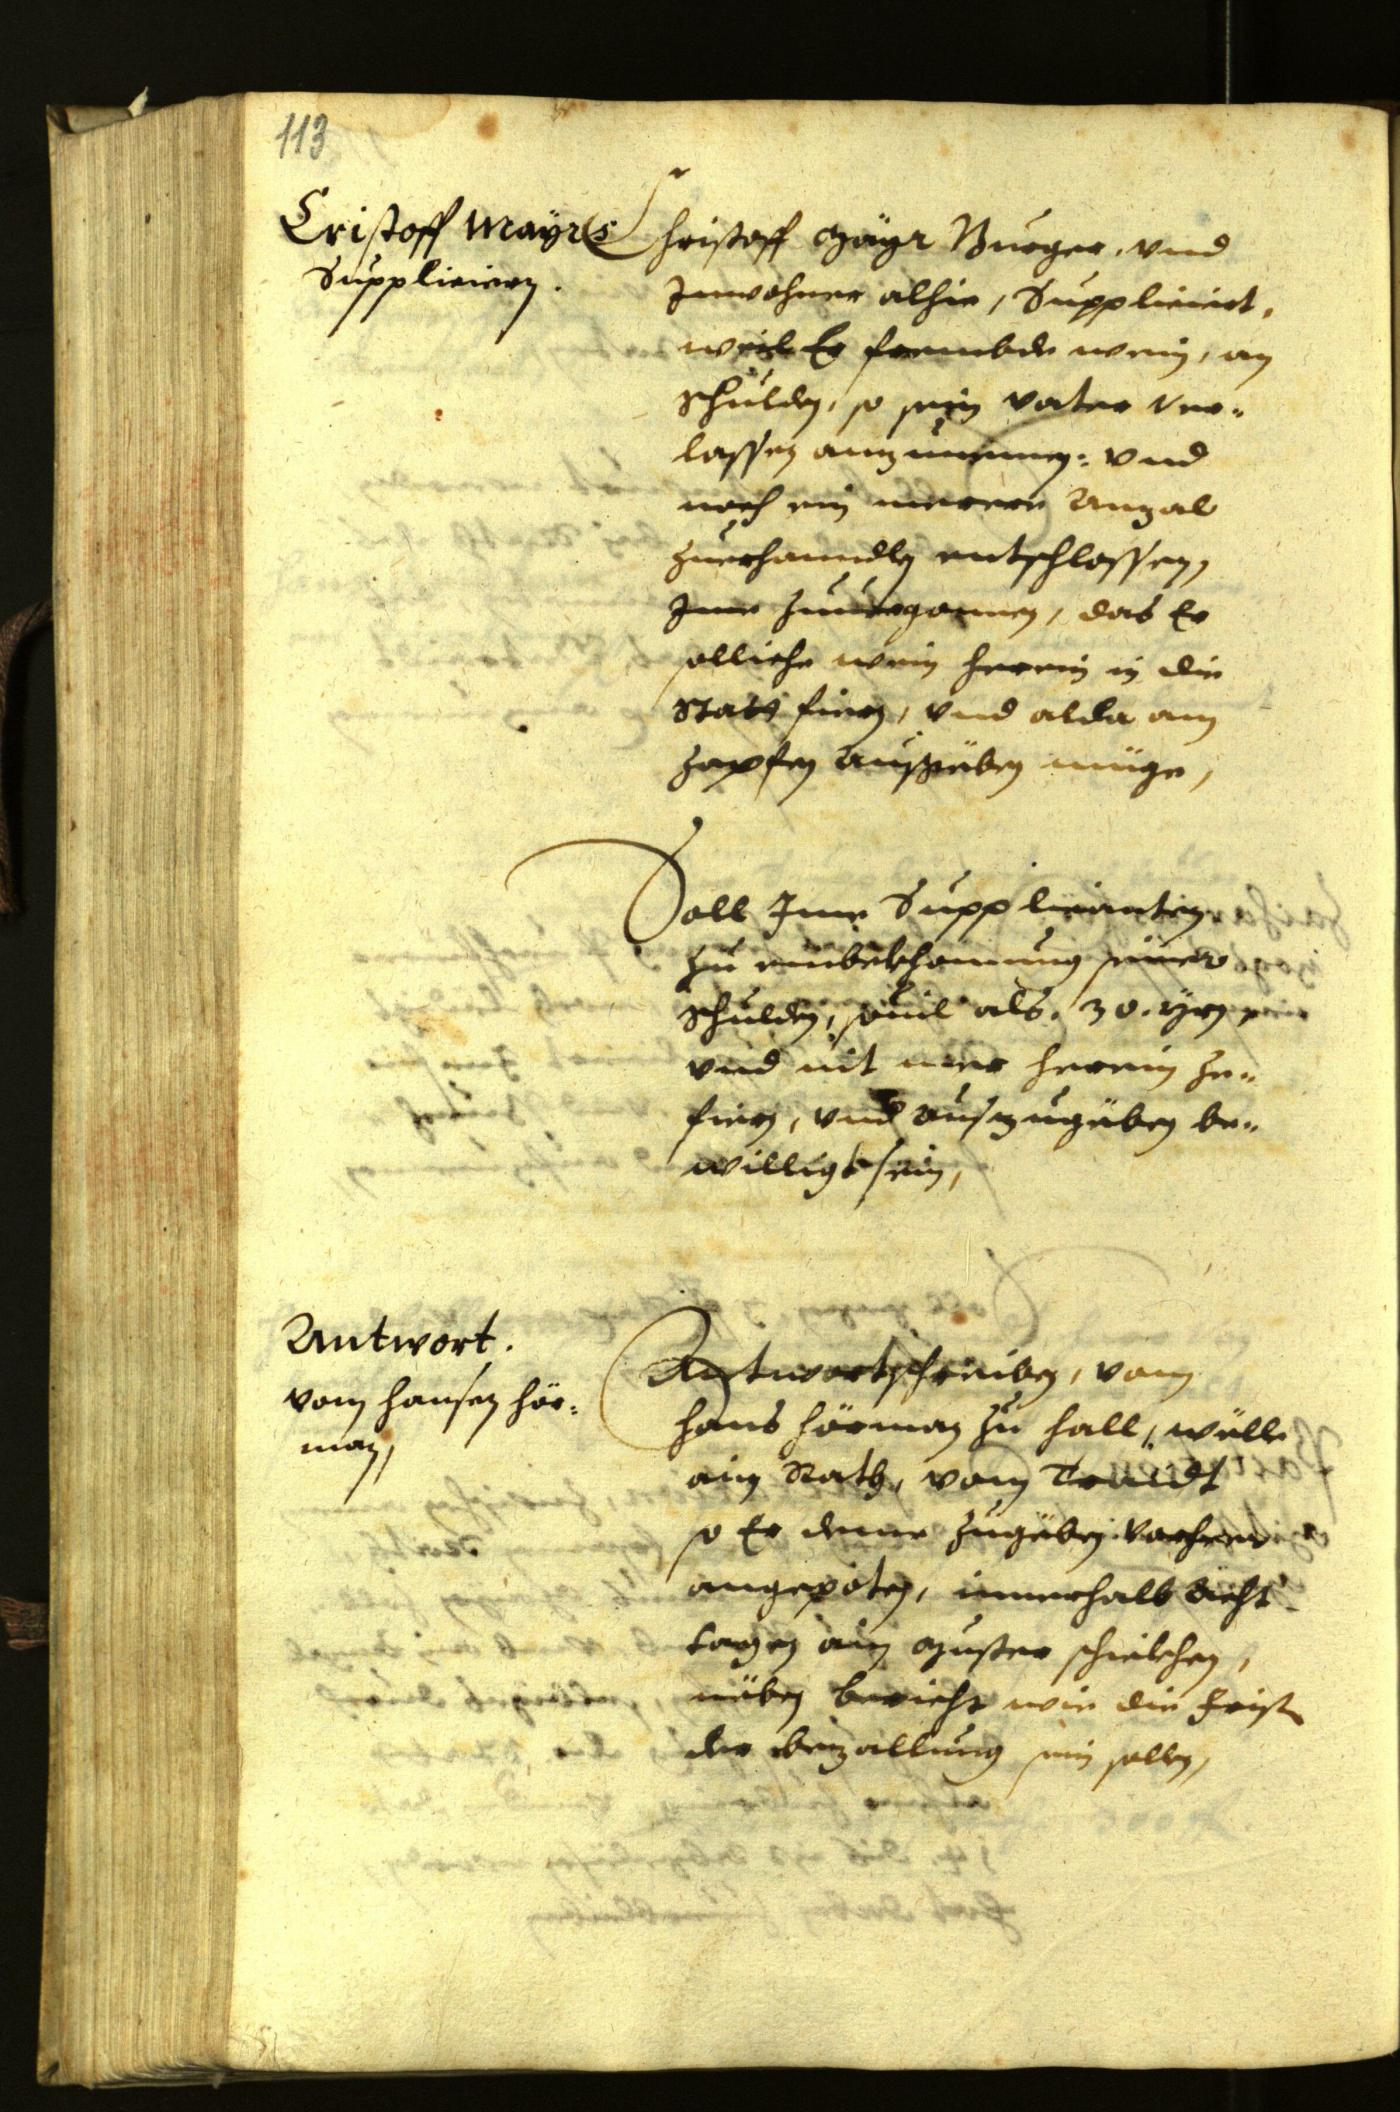 113
Cristoff Mayrs
Suppliciern.
Christoff Mayr Burger, vnd
Inwohner alhie, Supplicirt,
weil Er frembde wein, an
schulden, so sein vater ver-
lassen anzunemen: vnd
noch ein merere Anzal
zuerhanndlen entschlossen,
Ime zuuergonnen, das Er
solliche wein herein in die
Statt fiern, vnd alda am
zapfen außgëben müge,
Soll Ime Supplicanten
zu einbekhomung seiner
schulden, souil als 30. Yrn
vnd nit mer herein ze-
fiern, vnd auszugëben be-
willigt sein,
Antwort.
vom Hansen Hör-
man,
Antwortschreiben, vom
Hans Hörman zu Hall, wölle
ain Rath, vom Traidt
so Er deme zugëben vorhero
angepoten, innerhalb acht
tagen ain Muster schickhen,
nëben bericht wie die Frist
der bezallung sein sollen,